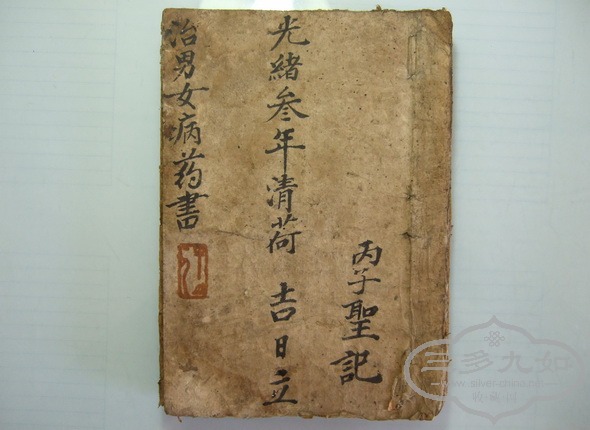 丙子聖記
光緒叁年清荷 吉日立
治男女病药書
三多九如
www.silver-china.cn